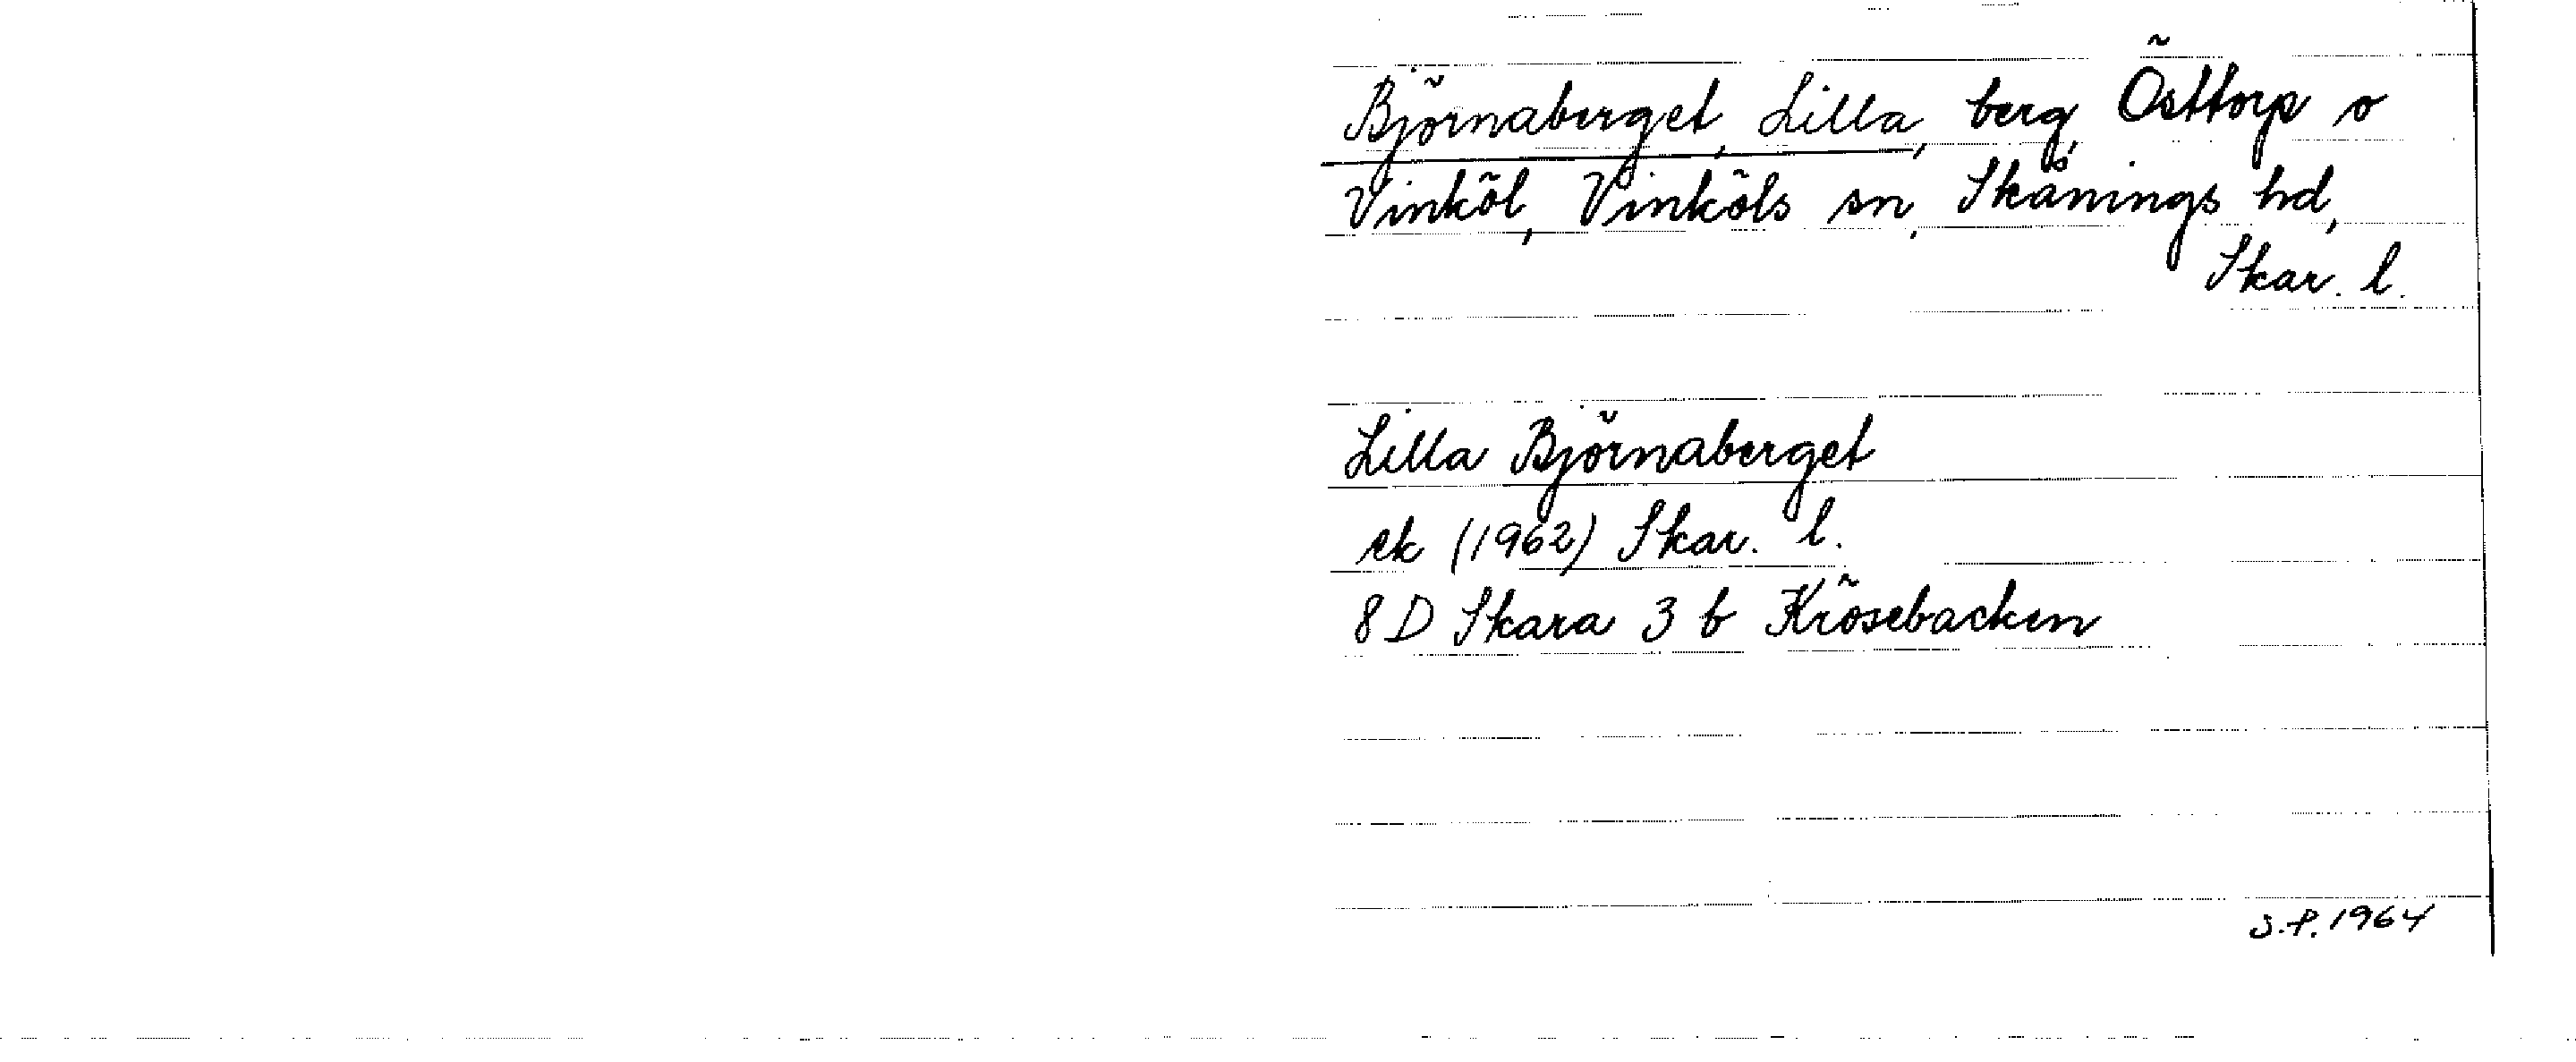 Björnaberget, Lilla, berg, Östtorp o
Vinköl, Vinköls sn, Skånings hd,
Skar. l.
Lilla Björnaberget
ek (1962) Skar. l.
8 D Skara 3 b Krösebacken
S.P. 1964